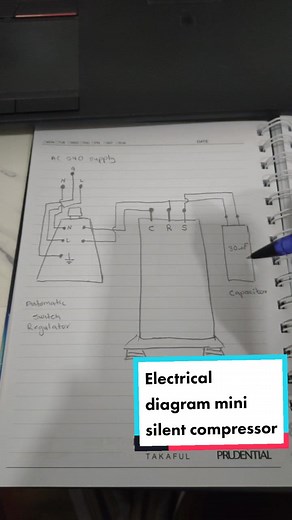 DATE
AC 240 Supply
N
L
N
L
C R S
Capacitor
Automatic
Switch
Regulator
Electrical
diagram mini
silent compressor
TAKAFUL PRUDENTIAL